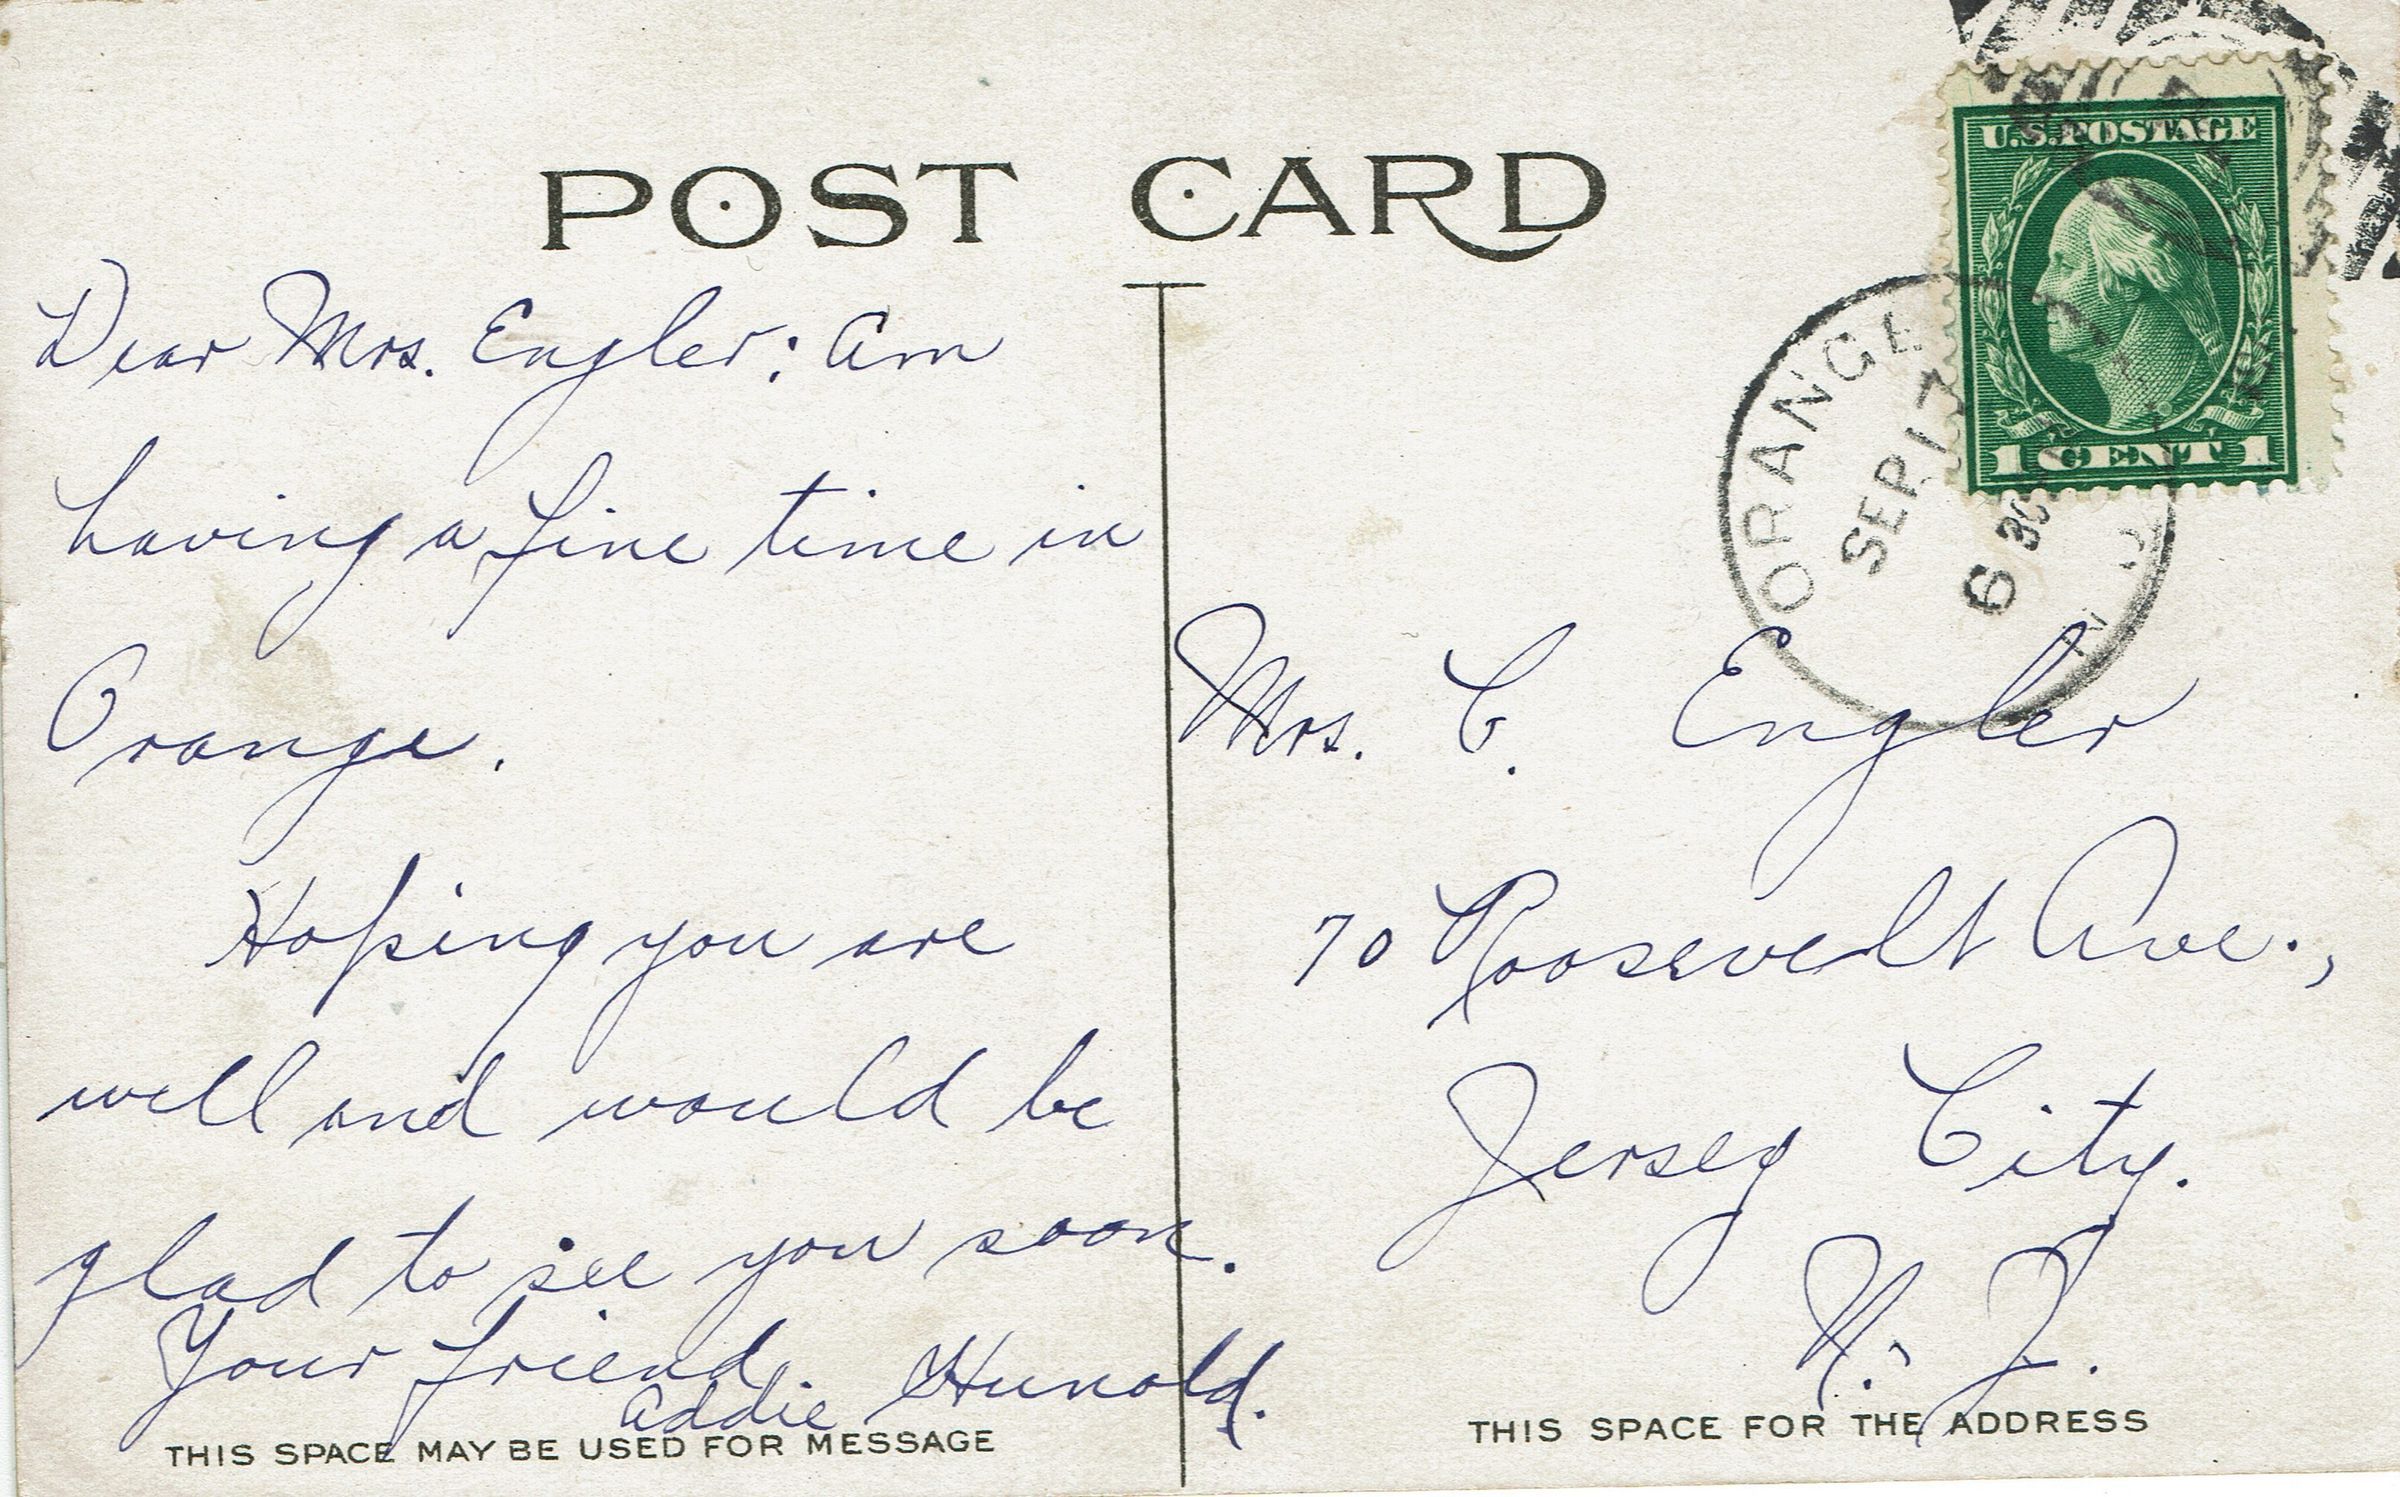 POST CARD
Dear Mrs. Engler: Am
having a fine time in
Orange.
Hoping you are
well and would be
glad to see you soon.
Your friend
Addie Hunold.
THIS SPACE MAY BE USED FOR MESSAGE
U.S. POSTAGE
1 CENT 1
ORANGE
SEP 17
6 30
N
Mrs. C. Engler
70 Roosevelt Ave.,
Jersey City.
N. J.
THIS SPACE FOR THE ADDRESS